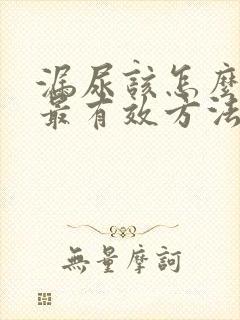 漏尿該怎麼
最有效方法
無量摩訶